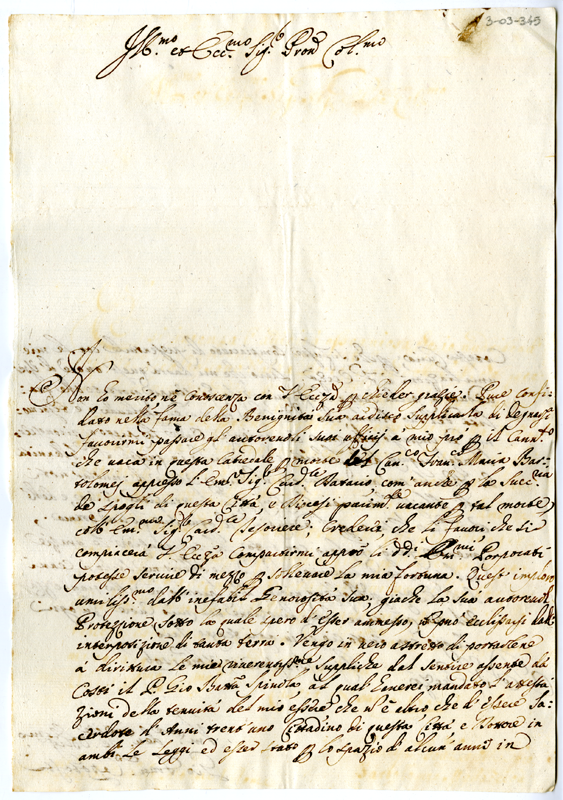 3-03-345
Ill.mo et Ecc.mo Sig.r Pron Col.mo
Non ho merito nè conoscenza con V. Ecc.za p chieder grazie. Pure confi-
dato nella fama della Benignità Sua ardisco supplicarla di degnarsi
favorirmi passare gl' autorevoli suoi uffizi a mio pro p il Can.to
che vaca in questa Catedrale p morte del Can.co Fran.co Maria Bar-
tolomei appresso l' Em.o Sig. Card.le com' anche p la
de Spogli di questa Città e Diocesi vacante p tal morte
coll' Em.mo Sig. Card.le Tesoriere. Crederei che li favori che si
compiacerà V. Ecc.za compartirmi appresso li dd. Em.mi Porporati
potesse servire di mezzo p sostenere la mia fortuna. Quest' imploro
umiliss.mo dall' inefabil Generosità Sua, giache la Sua autorevol
Protezione sotto la quale spero d' esser ammesso, non ecclissasi dall'
interposizione di tanta terra. Vengo in ciò a portarlene
a dirittura le mie suppliche dal sentire assente da
Costì il P. Gio Batta Spinola, al qual' haverei mandato l' attesta
zioni della tenuità del mio essere che n' è altro che d' essere Sa-
cerdote d' Anni trent' uno Cittadino di questa Città e Dottore in
ambe le Leggi ed esser stato p lo spazio d' alcun' anni in